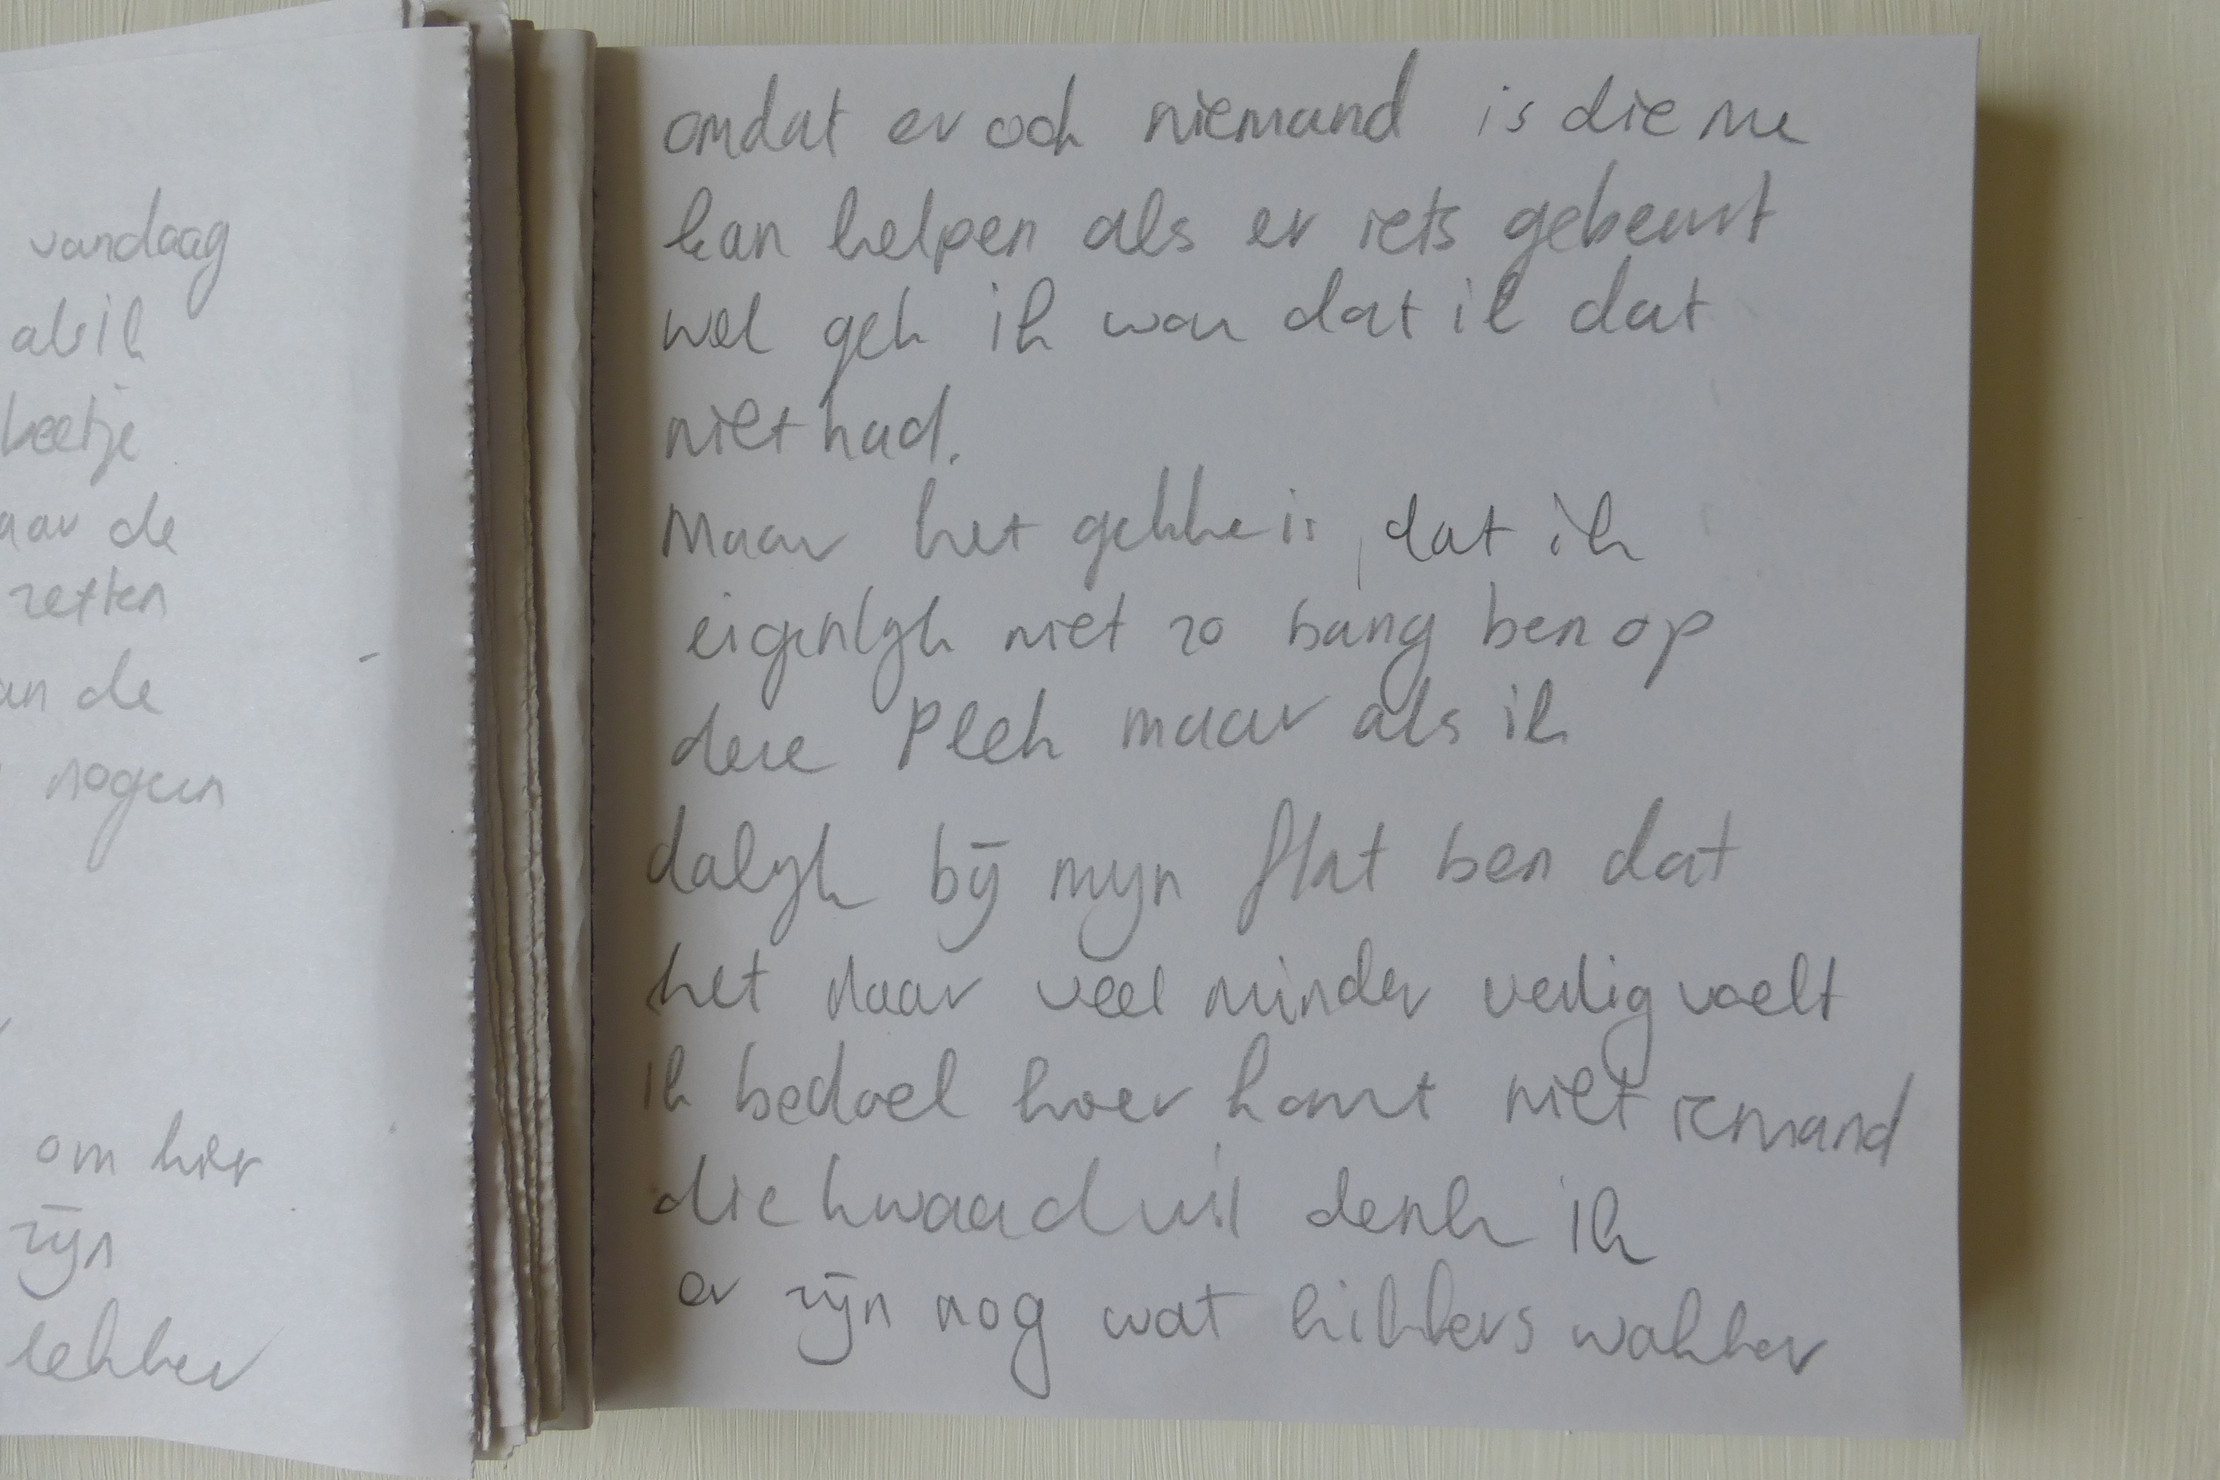 vandaag
als ik
beetje
aar de
zetten
an de
nog een
om hier
zijn
lekker
omdat er ook niemand is die me
kan helpen als er iets gebeurt
wel gek ik wou dat ik dat
niet had.
Maar het gekke is, dat ik
eigenlijk niet zo bang ben op
deze plek maar als ik
dalijk bij mijn flat ben dat
het daar veel minder veilig voelt
ik bedoel hoer komt niet iemand
die kwaad wil denk ik
er zijn nog wat kikkers wakker